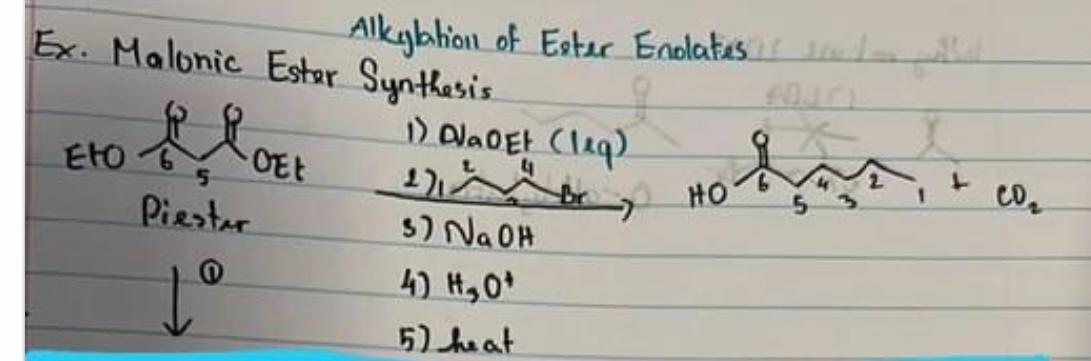 Alkylation of Ester Enolates
Ex. Malonic Ester Synthesis
1) NaOEt (1eq)
EtO 6 5 OEt
2) 1 2 4 Br
HO 6 5 4 3 2 1 + CO2
Diester
3) NaOH
① 4) H3O+
5) heat